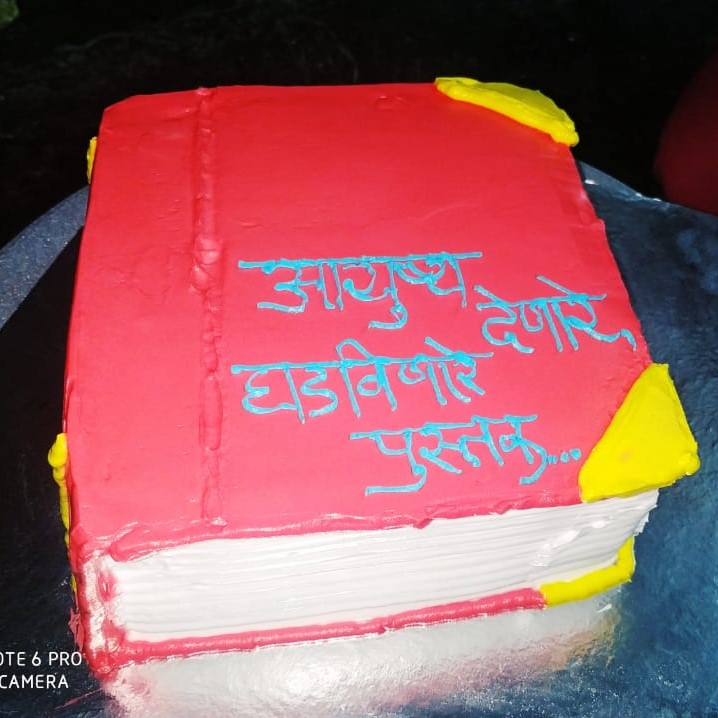 आयुष्य
देणारे,
घडविणारे
पुस्तक...
OTE 6 PRO
CAMERA